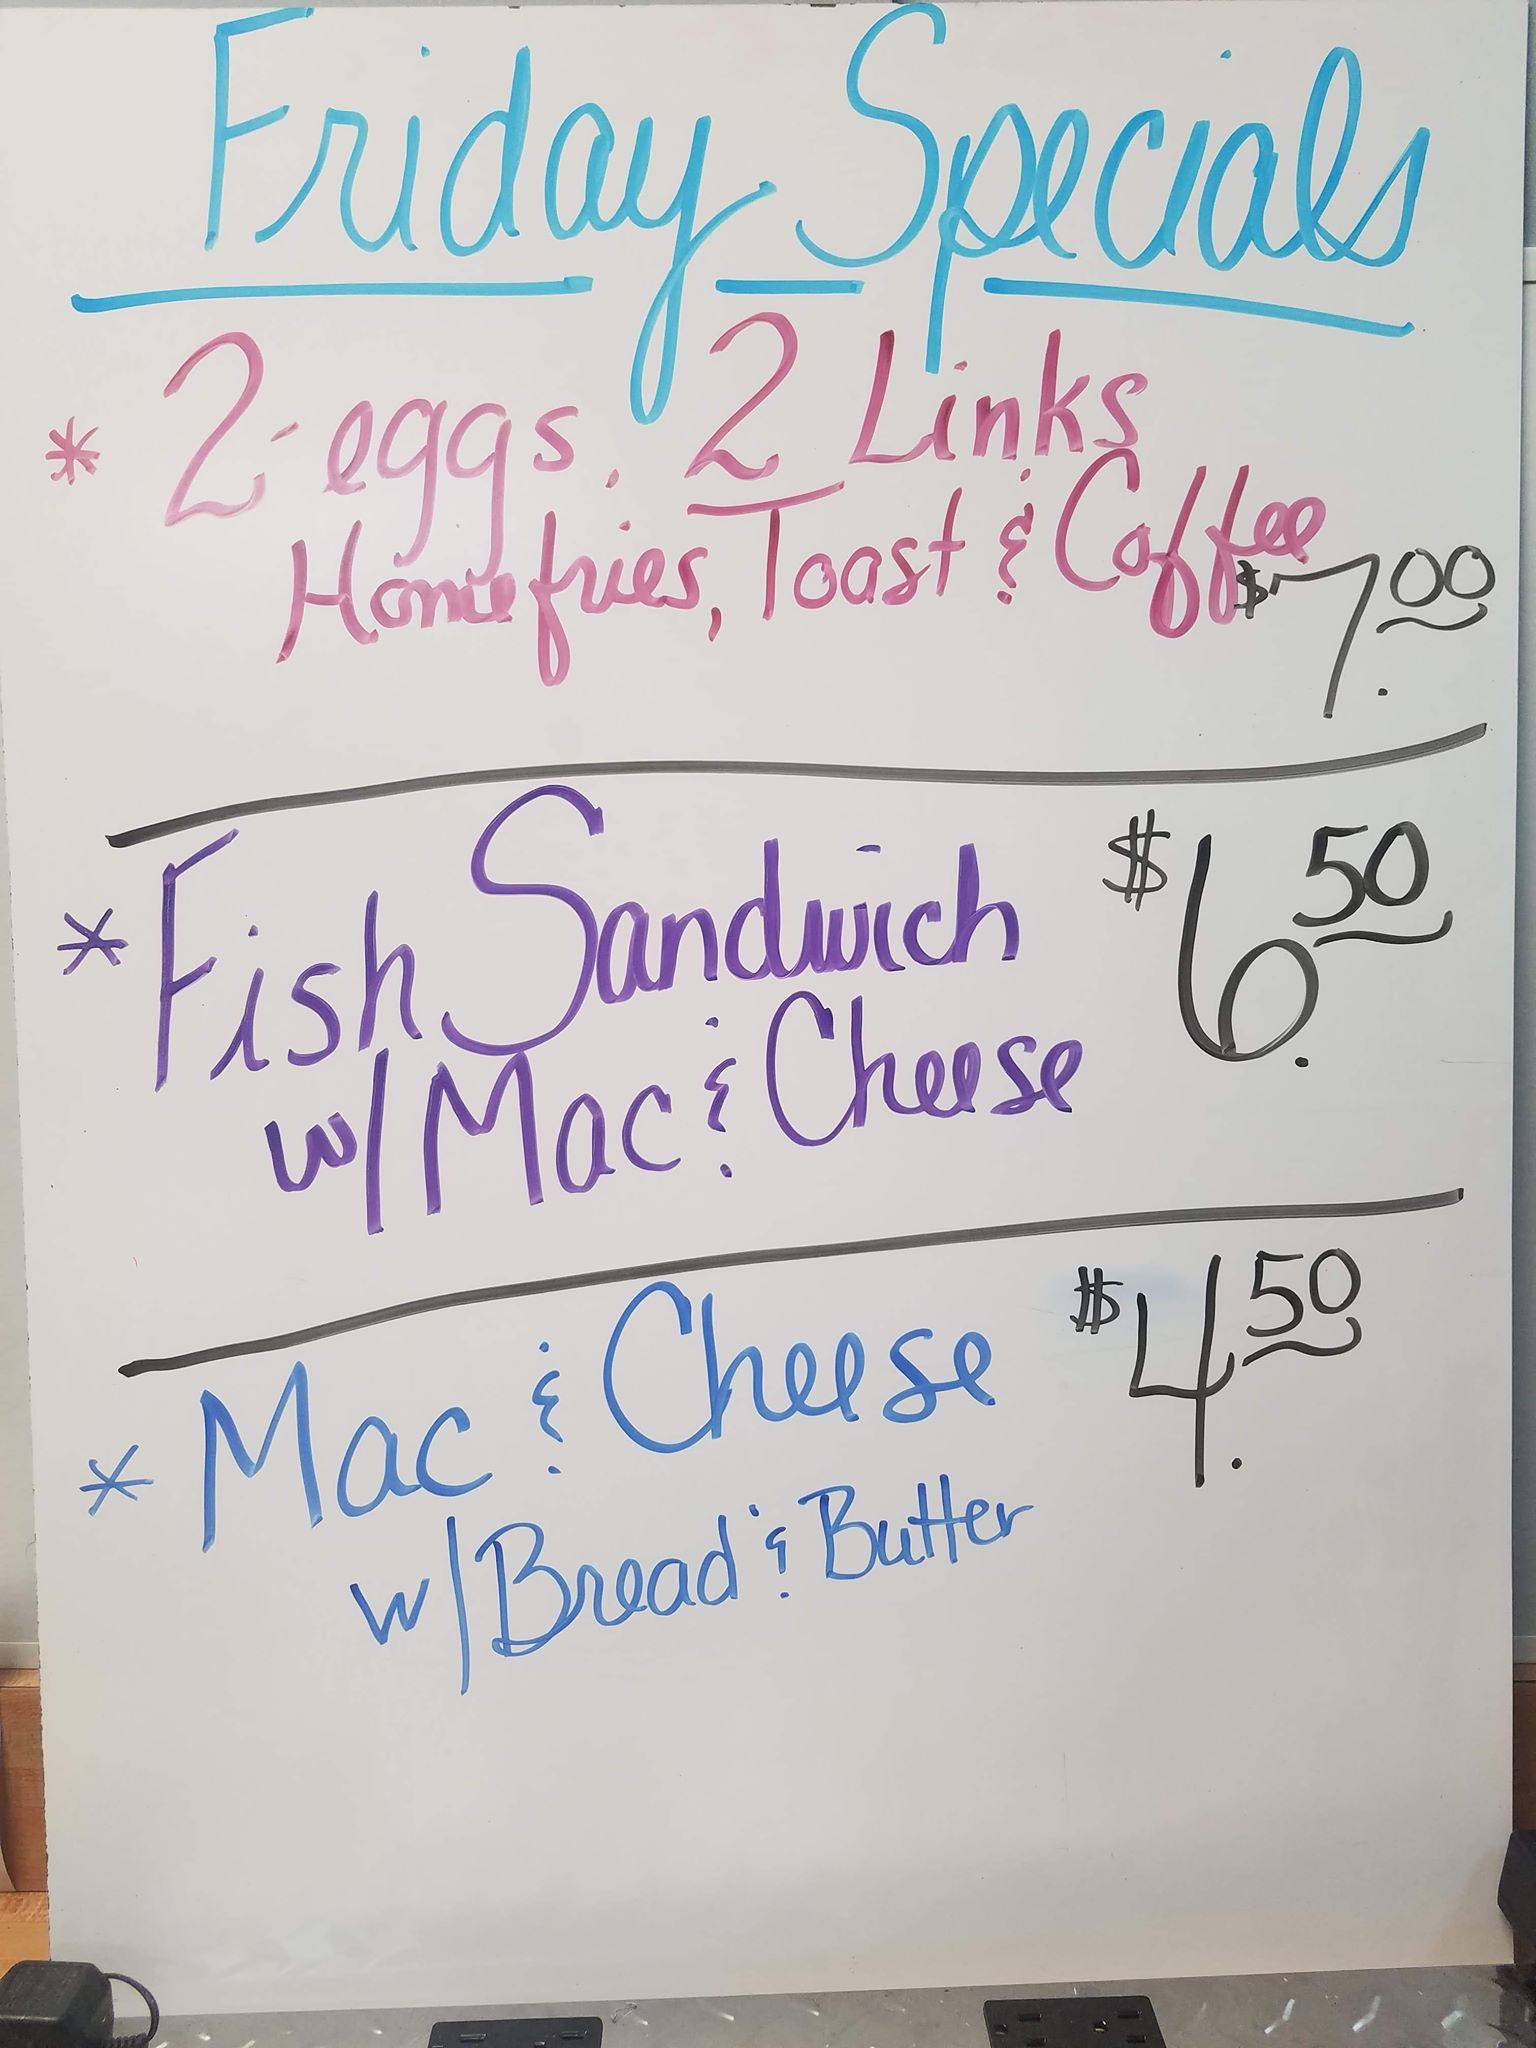 Friday Specials
* 2 eggs, 2 Links
Homefries, Toast & Coffee $7.00
* Fish Sandwich $6.50
w/ Mac & Cheese
* Mac & Cheese $4.50
w/ Bread & Butter